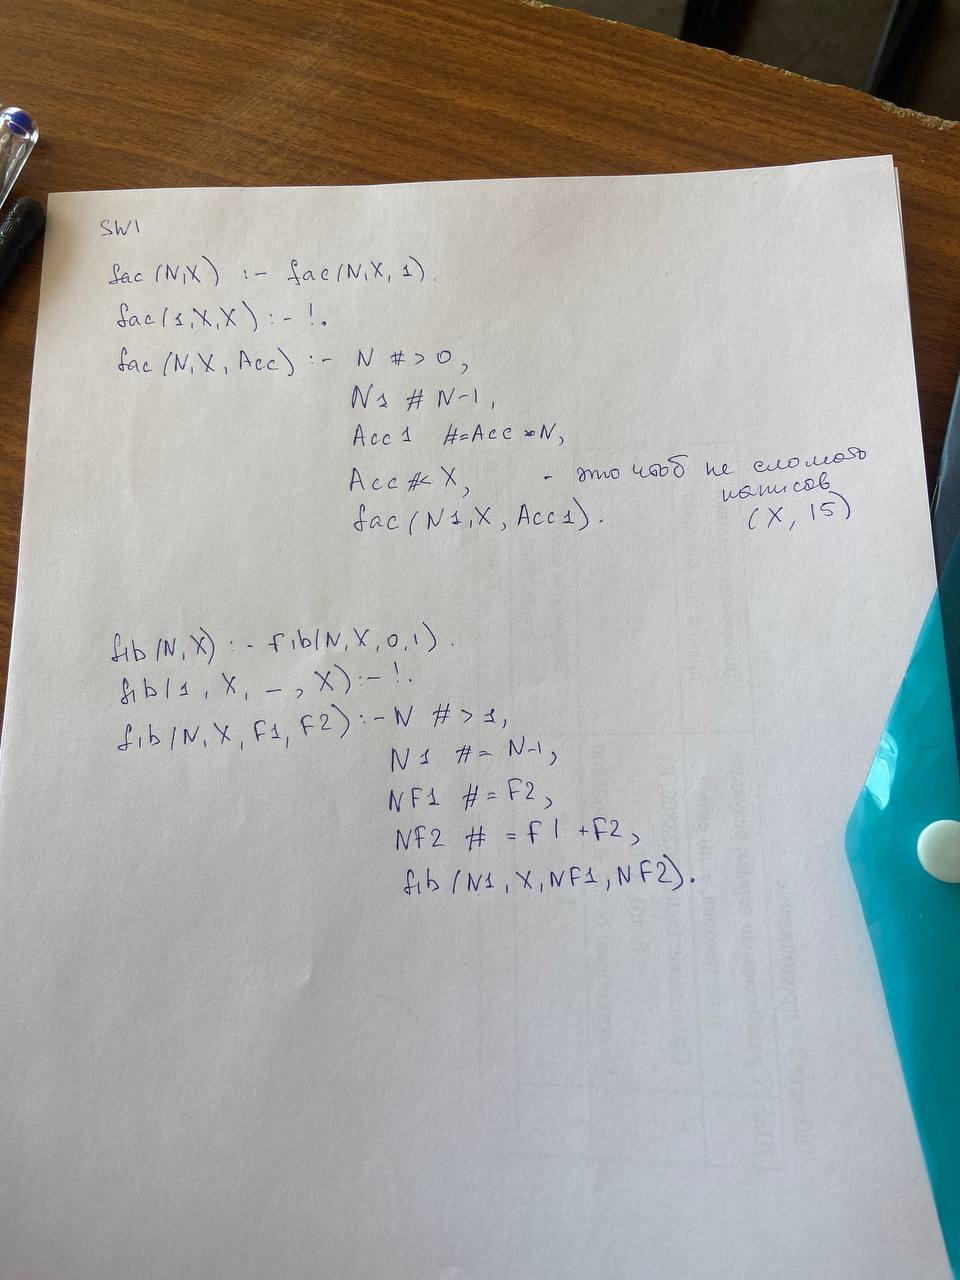 SWI
fac(N,X) :- fac(N,X,1).
fac(1,X,X) :- !.
fac(N,X,Acc) :- N #> 0,
N1 # N-1,
Acc1 #= Acc * N,
Acc #< X, - это чтоб не сломать
написав
fac(N1,X,Acc1). (X, 15)
fib(N,X) :- fib(N,X,0,1).
fib(1, X, _, X) :- !.
fib(N,X,F1,F2) :- N #> 1,
N1 #= N-1,
NF1 #= F2,
NF2 #= F1 + F2,
fib(N1,X,NF1,NF2).